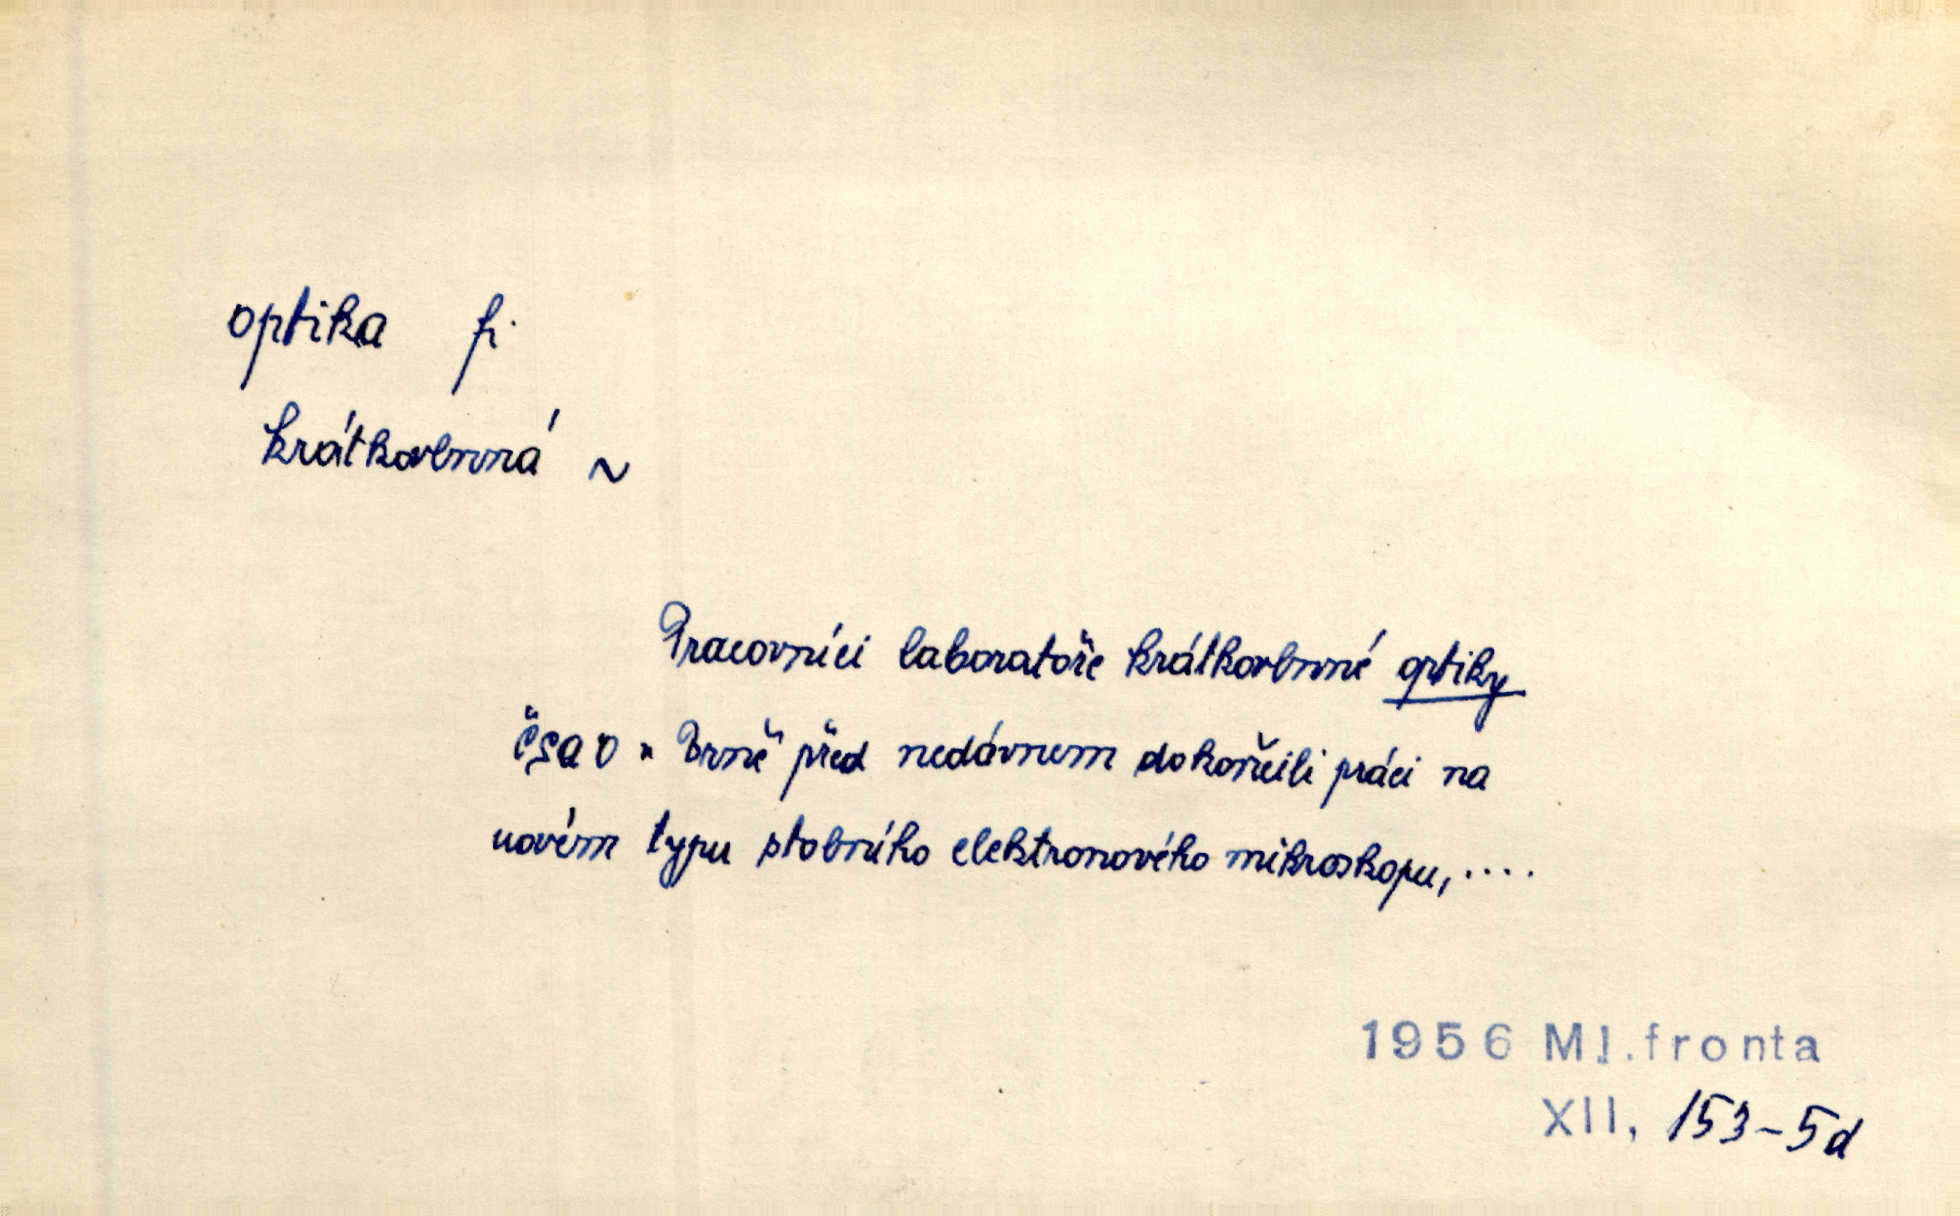 optika fi
krátkovlnná ~
Pracovníci laboratoře krátkovlnné optiky
ČSAV v Brně před nedávnem dokončili práci na
novém typu stolního elektronového mikroskopu, ....
1956 Ml. fronta
XII, 153-5d